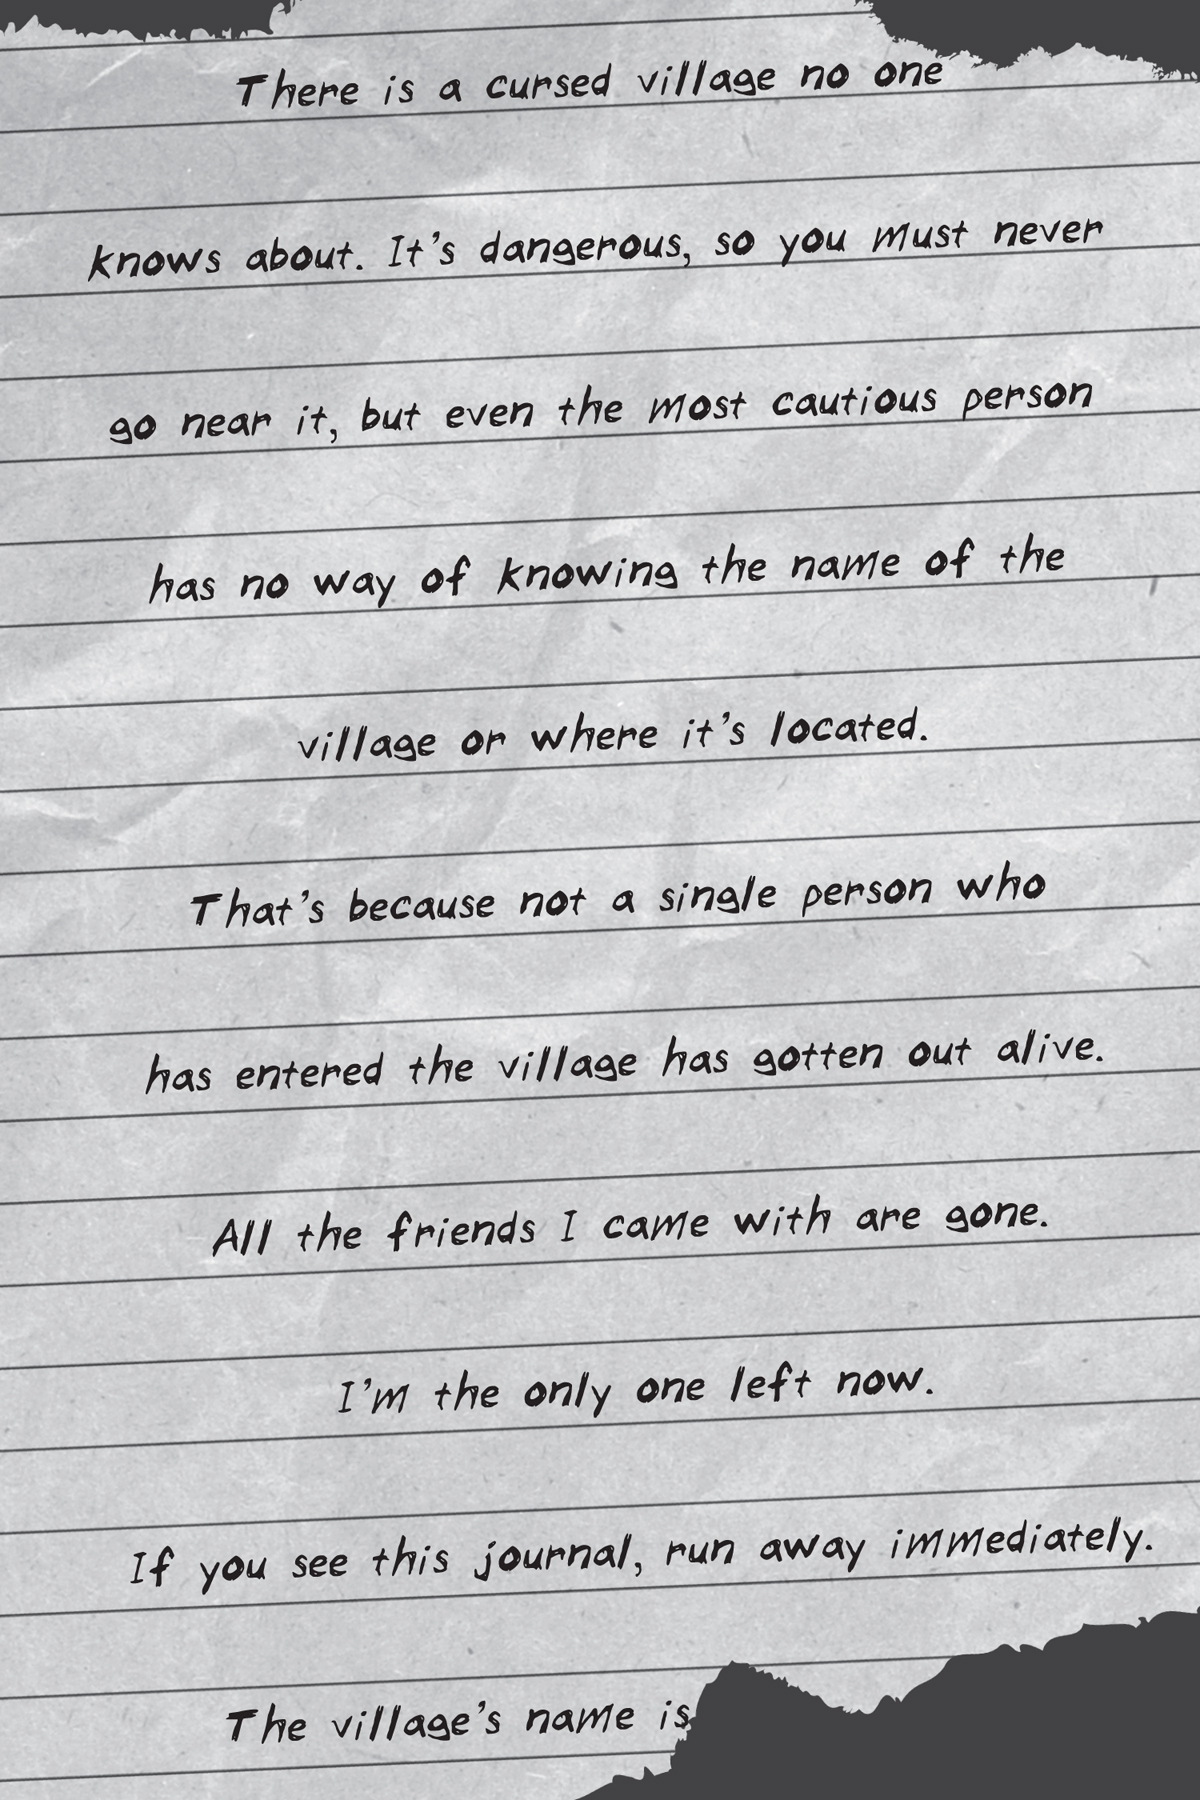 There is a cursed village no one
knows about. It's dangerous, so you must never
go near it, but even the most cautious person
has no way of knowing the name of the
village or where it's located.
That's because not a single person who
has entered the village has gotten out alive.
All the friends I came with are gone.
I'm the only one left now.
If you see this journal, run away immediately.
The village's name is